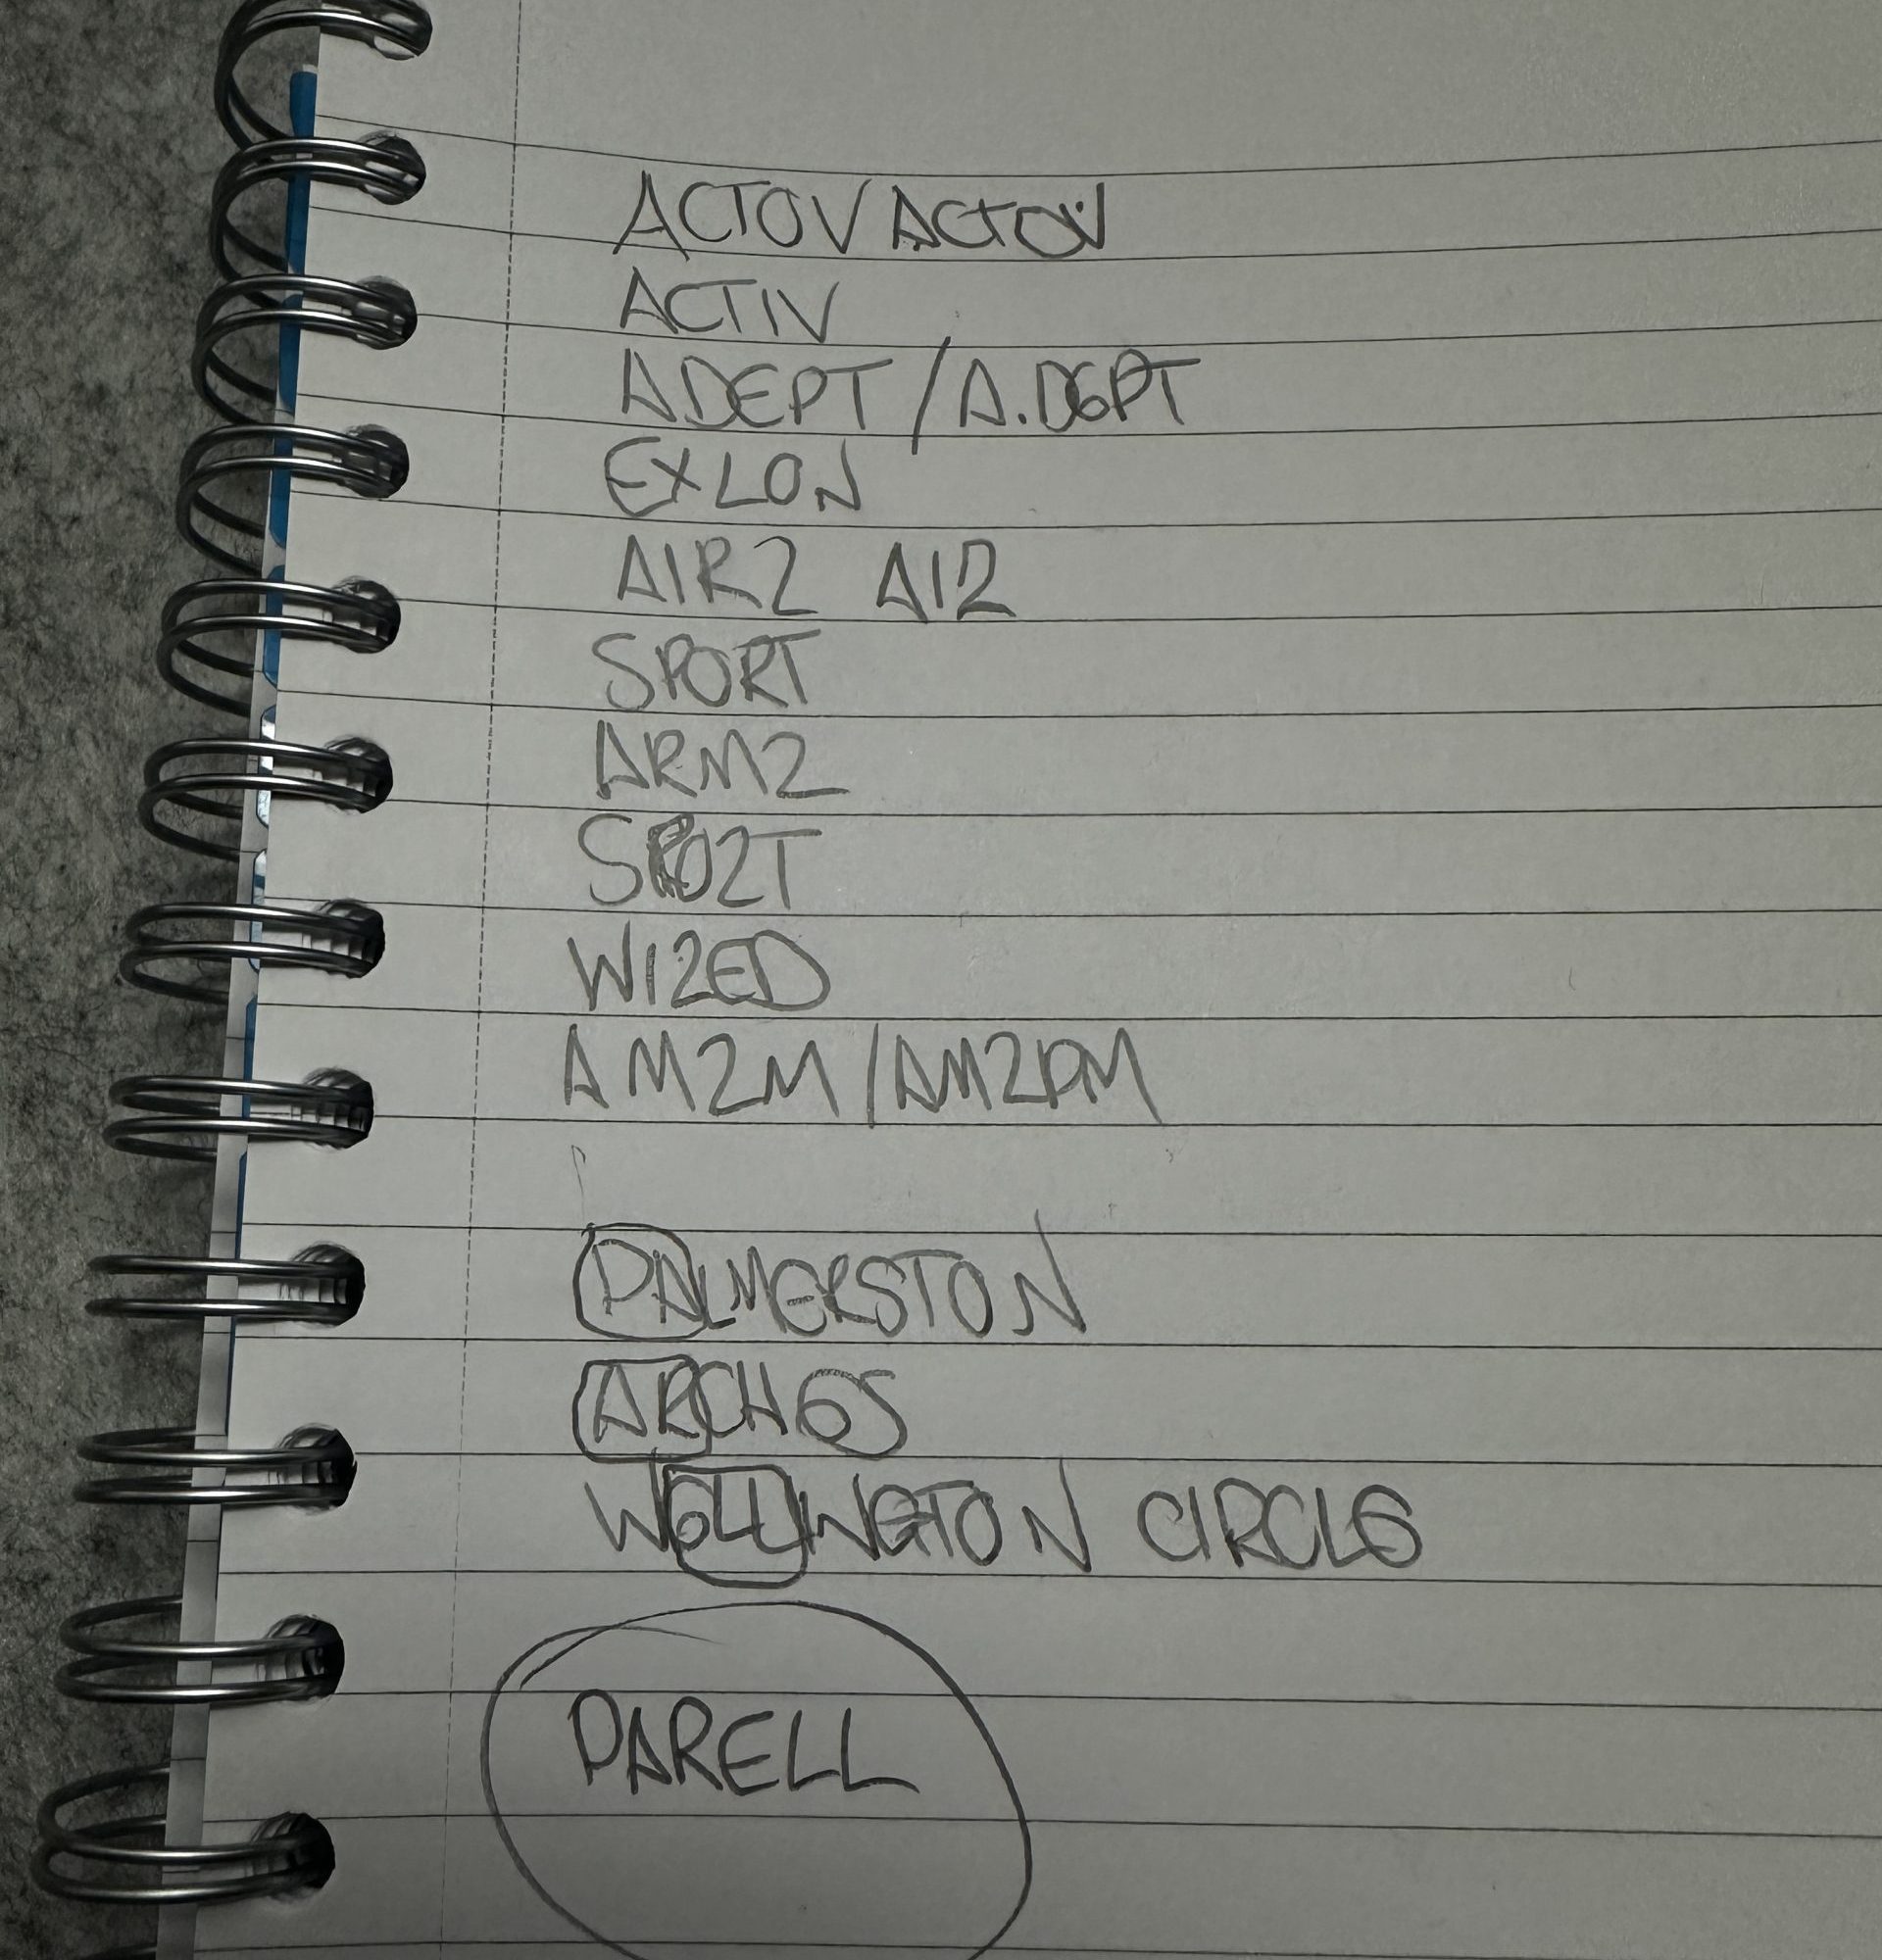 ACTOV ACTOV
ACTIV
ADEPT / A.DEPT
EXLON
AIR2 AI2
SPORT
ARM2
SPO2T
WI2ED
AM2M / AM2DM
PALMERSTON
ARCHES
WELLINGTON CIRCLE
PARELL